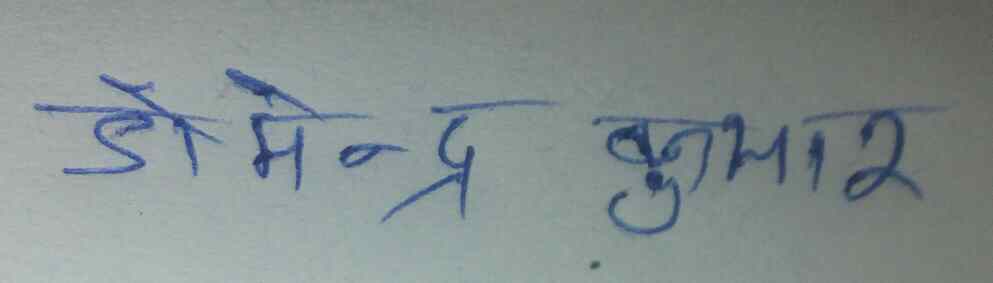 डोमेन्द्र कुमार